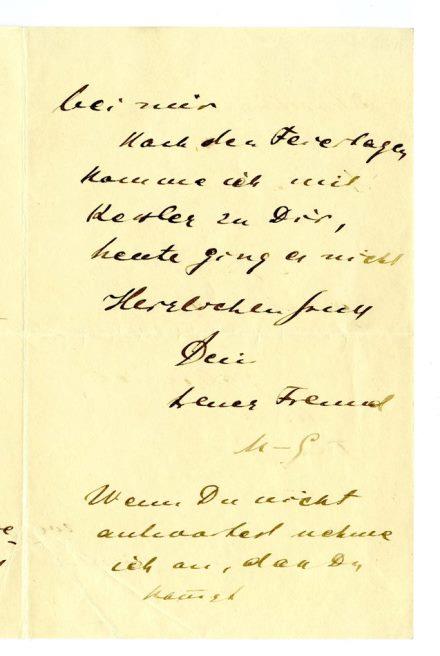 bei mir
Nach den Feiertagen
komme ich mit
Kessler zu Dir,
heute ging es nicht
Herzlichen Gruß
Dein
treuer Freund
M-G
Wenn Du nicht
antwortest nehme
ich an, daß Du
kommst